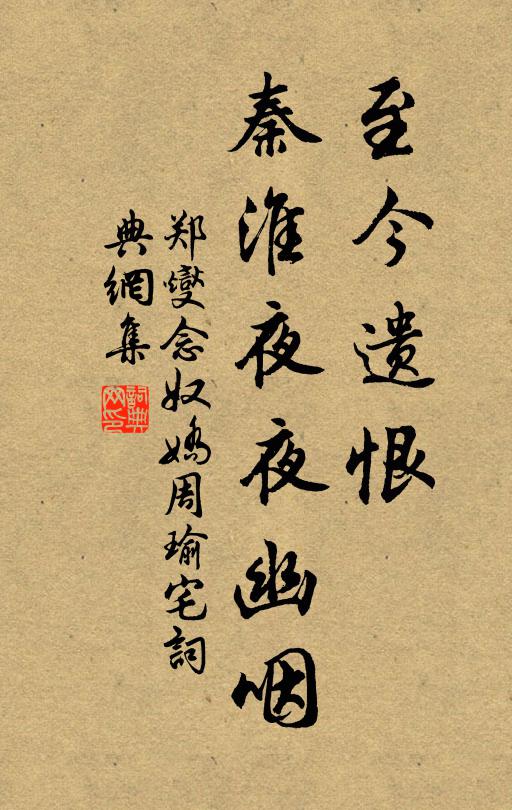 至今遗恨
秦淮夜夜幽咽
郑燮念奴娇周瑜宅詞
典網集
詞典网印